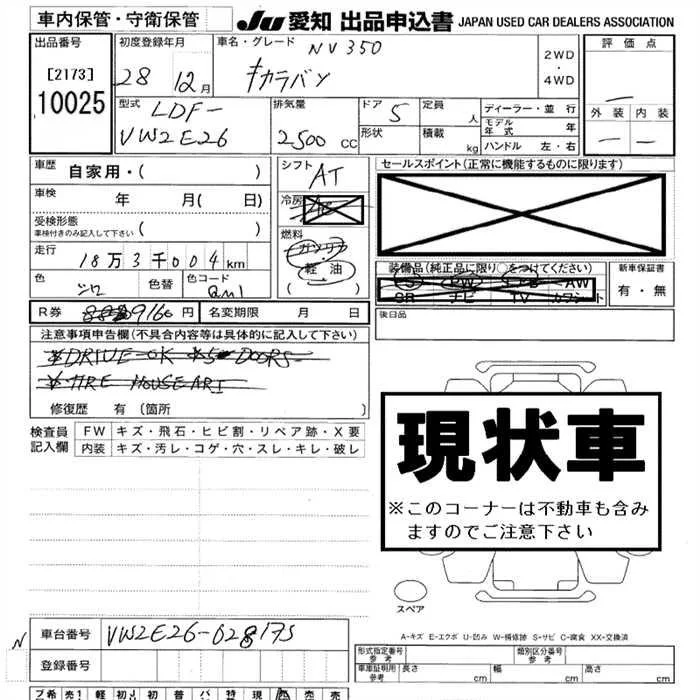 車内保管・守衛保管
JU 愛知 出品申込書 JAPAN USED CAR DEALERS ASSOCIATION
出品番号 初度登録年月 車名・グレード NV350 評価点
[2173] 28 年 12月 キャラバン 2WD・4WD
10025
型式 LDF- 排気量 ドア 5 定員 人 ディーラー・並 行 外装 内装
VW2E26 2500 CC 形状 積載 kg モデル年式 年
ハンドル 左・右
車歴 自家用・( ) シフト AT セールスポイント(正常に機能するものに限ります)
車検 年 月( 日) 冷房
受検形態 車検付きのみ記入して下さい ( )
燃料 ガソリン
走行 18万3千004km 軽油
( )
色 シロ 色替 色コード QM1
装備品(純正品に限り○をつけてください) 新車保証書
PW AW 有・無
SR ナビ TV カワシート
R券 9160円 名変期限 月 日 後日品
注意事項申告欄(不具合内容等は具体的に記入して下さい)
*DRIVE OK *5 DOORS
修復歴 有 (箇所 )
検査員記入欄 FW キズ・飛石・ヒビ割・リペア跡・X要
内装 キズ・汚レ・コゲ・穴・スレ・キレ・破レ
現状車
※このコーナーは不動車も含み
ますのでご注意下さい
スペア
A-キズ E-エクボ U-凹み W-補修跡 S-サビ C-腐食 XX-交換済
N 車台番号 VW2E26-028175
登録番号
形式指定番号 参考 類別区分番号 参考
車庫証明用 参考 長さ cm 幅 cm 高さ cm